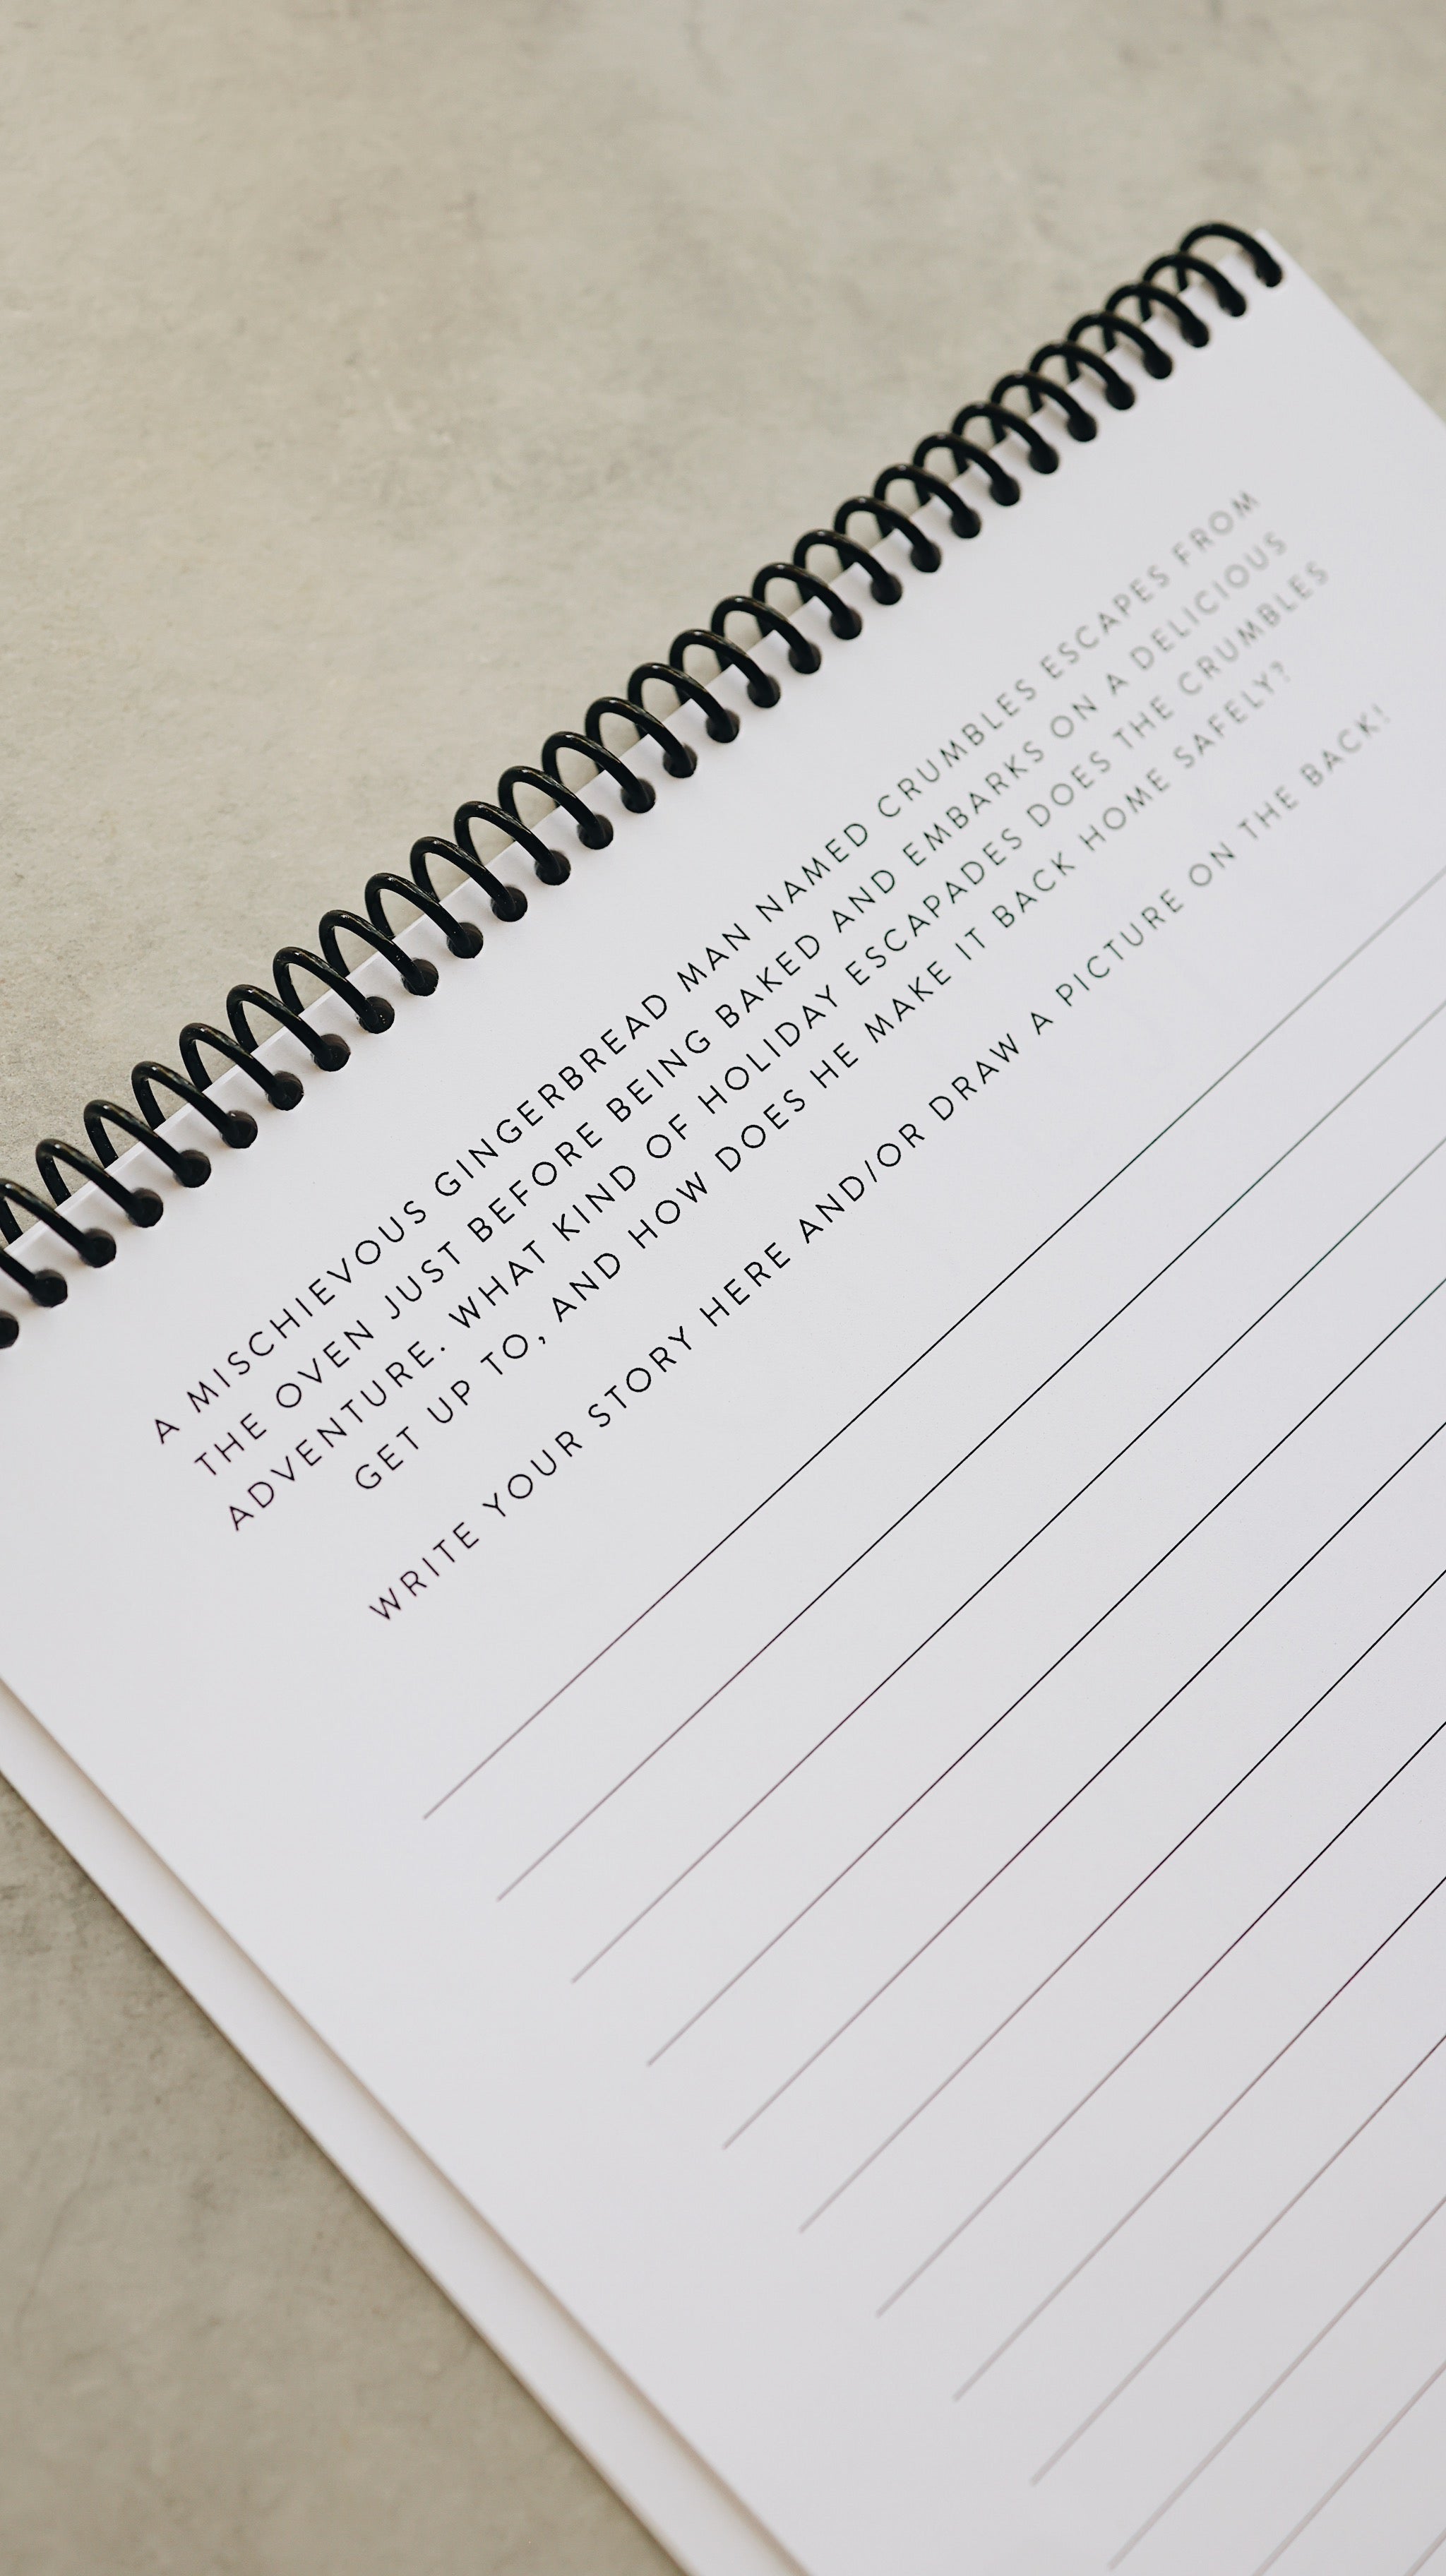 A MISCHIEVOUS GINGERBREAD MAN NAMED CRUMBLES ESCAPES FROM
THE OVEN JUST BEFORE BEING BAKED AND EMBARKS ON A DELICIOUS
ADVENTURE. WHAT KIND OF HOLIDAY ESCAPADES DOES THE CRUMBLES
GET UP TO, AND HOW DOES HE MAKE IT BACK HOME SAFELY?
WRITE YOUR STORY HERE AND/OR DRAW A PICTURE ON THE BACK!